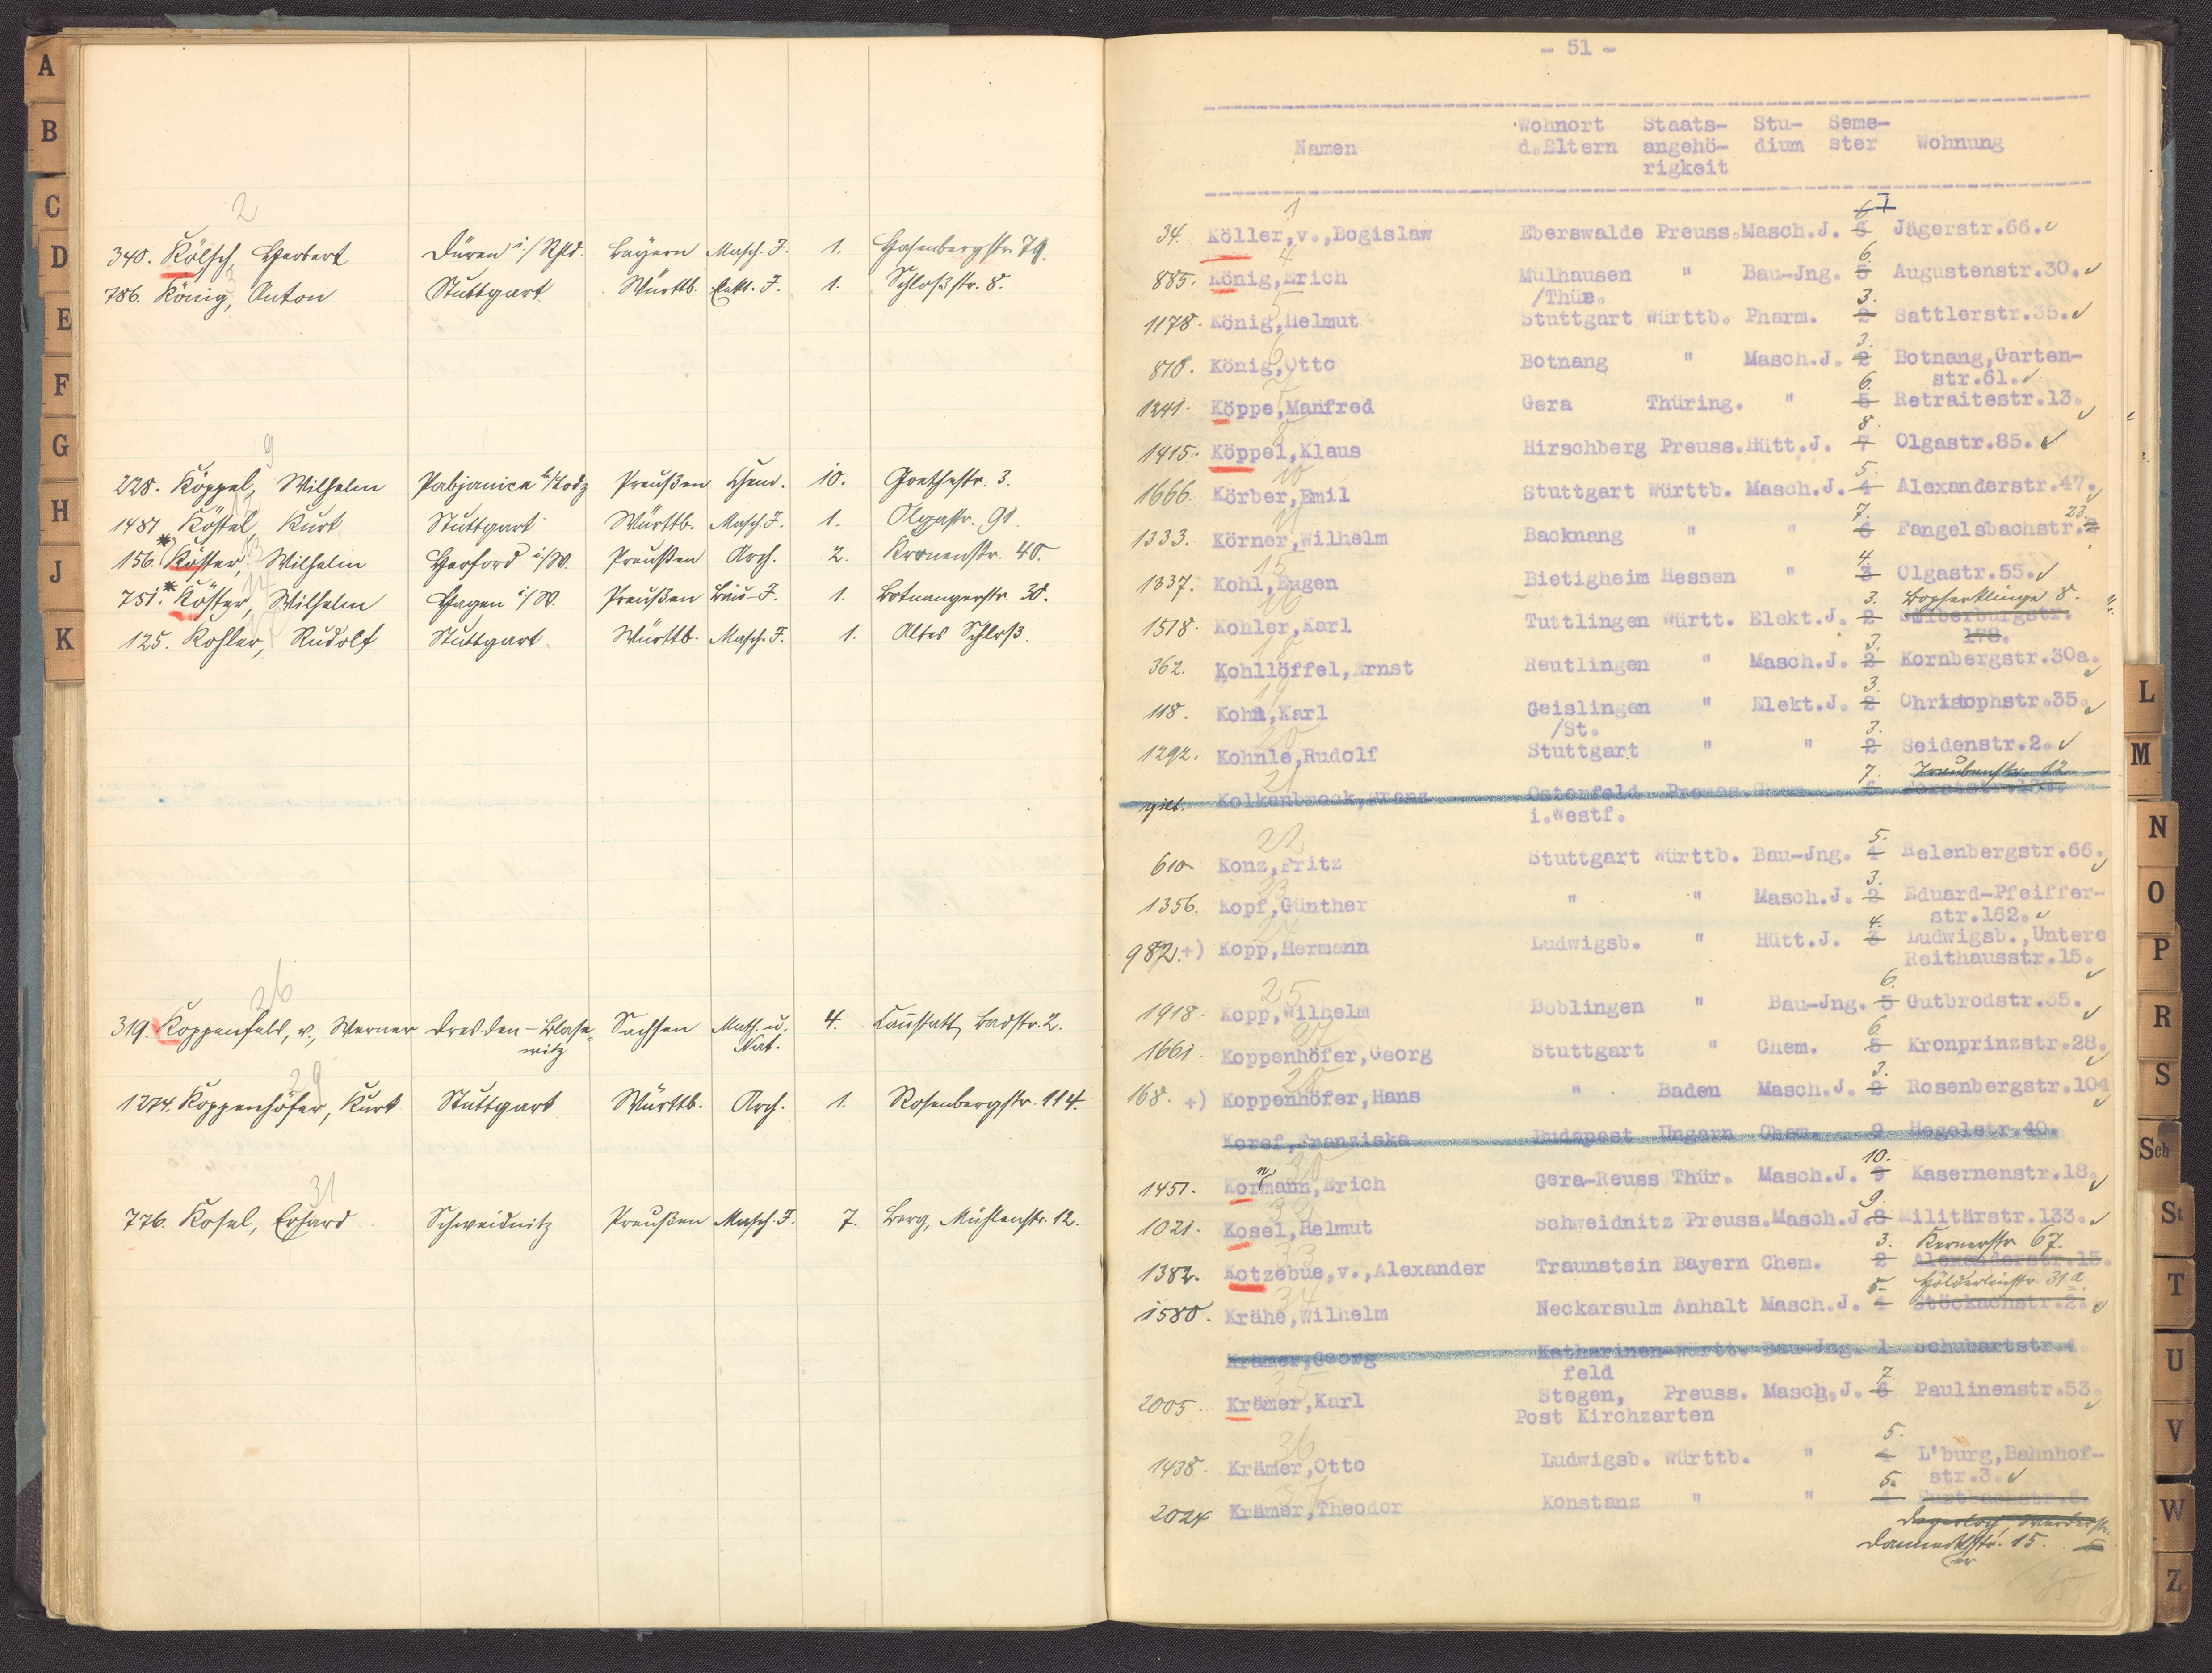 A
B
C
D
E
F
G
H
J
K
2
340. Kölsch, Herbert Düren i./Rhld. Bayern Masch. J. 1. Hasenbergstr. 79.
786. König, Anton Stuttgart Württb. Elekt. J. 1. Schloßstr. 8.
9
228. Köppel, Wilhelm Pabjanice b/Lodz Preußen Chem. 10. Goethestr. 3.
1487 Köstel, Kurt Stuttgart Württb. Masch. J. 1. Olgastr. 91.
156. *) Köster, Wilhelm Herford i/W. Preußen Arch. 2. Kronenstr. 40.
751. * Köster, Wilhelm Hagen i/W. Preußen Bau-J. 1. Botnangerstr. 30.
125. Kohler, Rudolf Stuttgart. Württb. Masch. J. 1. Altes Schloß.
26
319. Koppenfels, v., Werner Dresden-Blase- Sachsen Math. u. 4. Cannstatt, Badstr. 2.
witz Nat.
29
1274. Koppenhöfer, Kurt Stuttgart Württb. Arch. 1. Rosenbergstr. 114.
31
776. Kosel, Erhard Schweidnitz Preußen Masch. J. 7. Berg, Mühlenstr. 12.
- 51 -
Wohnort Staats- Stu- Seme-
Namen d.Eltern angehö- dium ster Wohnung
rigkeit
1 6 7
34. Köller,v.,Bogislaw Eberswalde Preuss.Masch.J. 5 Jägerstr.66.
4 6.
885. König,Erich Mülhausen " Bau-Jng. 5 Augustenstr.30.
5 /Thür. 3.
1178. König,Helmut Stuttgart Württb. Pharm. 2 Sattlerstr.35.
6 3.
810. König,Otto Botnang " Masch.J. 2 Botnang,Garten-
7 6. str.61.
1241. Köppe,Manfred Gera Thüring. " 5 Retraitestr.13.
8 8.
1415. Köppel,Klaus Hirschberg Preuss.Hütt.J. 7 Olgastr.85.
10 5.
1666. Körber,Emil Stuttgart Württb. Masch.J. 4 Alexanderstr.47.
11 7. 23.
1333. Körner,Wilhelm Backnang " " 6 Fangelsbachstr.
15 4.
1337. Kohl,Eugen Bietigheim Hessen " 3 Olgastr.55.
16 3. Bopserklinge 8.
1518. Kohler,Karl Tuttlingen Württ. Elekt.J. 2 Silberburgstr.
178.
18 3.
362. Kohllöffel,Ernst Reutlingen " Masch.J. 2 Kornbergstr.30a.
19 3.
118. Kohn,Karl Geislingen " Elekt.J. 2 Christophstr.35.
20 /St. 3.
1292. Kohnle,Rudolf Stuttgart " " 2 Seidenstr.2.
21 7. Traubenstr. 12
Kolkenbrock,Franz Ostenfeld Preuss.Chem.
i.Westf.
22 5.
610 Konz,Fritz Stuttgart Württb. Bau-Jng. 4 Relenbergstr.66.
23 3.
1356. Kopf,Günther " " Masch.J. 2 Eduard-Pfeiffer-
24 4. str.162.
982.+) Kopp,Hermann Ludwigsb. " Hütt.J. 3 Ludwigsb.,Untere
Reithausstr.15.
25 6.
1918. Kopp,Wilhelm Böblingen " Bau-Jng. 5 Gutbrodstr.35.
27 6.
1661. Koppenhöfer,Georg Stuttgart " Chem. 5 Kronprinzstr.28.
28 3.
168. +) Koppenhöfer,Hans " Baden Masch.J. 2 Rosenbergstr.104
Koref,Franziska Budapest Ungarn Chem. 9 Hegelstr.40.
n 30 10.
1451. Kormann,Erich Gera-Reuss Thür. Masch.J. 9 Kasernenstr.18.
32 9.
1021. Kosel,Helmut Schweidnitz Preuss.Masch.J. 8 Militärstr.133.
33 3. Kernerstr. 67.
1382. Kotzebue,v.,Alexander Traunstein Bayern Chem. 2 Alexanderstr.15.
34 5. Hölderlinstr. 31a.
1580. Krähe,Wilhelm Neckarsulm Anhalt Masch.J. 4 Stöckachstr.2.
Krämer,Georg Katharinen-Württ. Bau-Jng. 1 Schubartstr.4.
feld
35 7.
2005. Krämer,Karl Stegen, Preuss. Masch.J. 6 Paulinenstr.53.
Post Kirchzarten
36 5.
1438. Krämer,Otto Ludwigsb. Württb. " 4 L'burg,Bahnhof-
str.3.
37 5.
2024 Krämer,Theodor Konstanz " " 4 Furtbachstr.6.
Degerloch,
Danneckerstr. 15.
L
M
N
O
P
R
S
Sch
St
T
U
V
W
Z